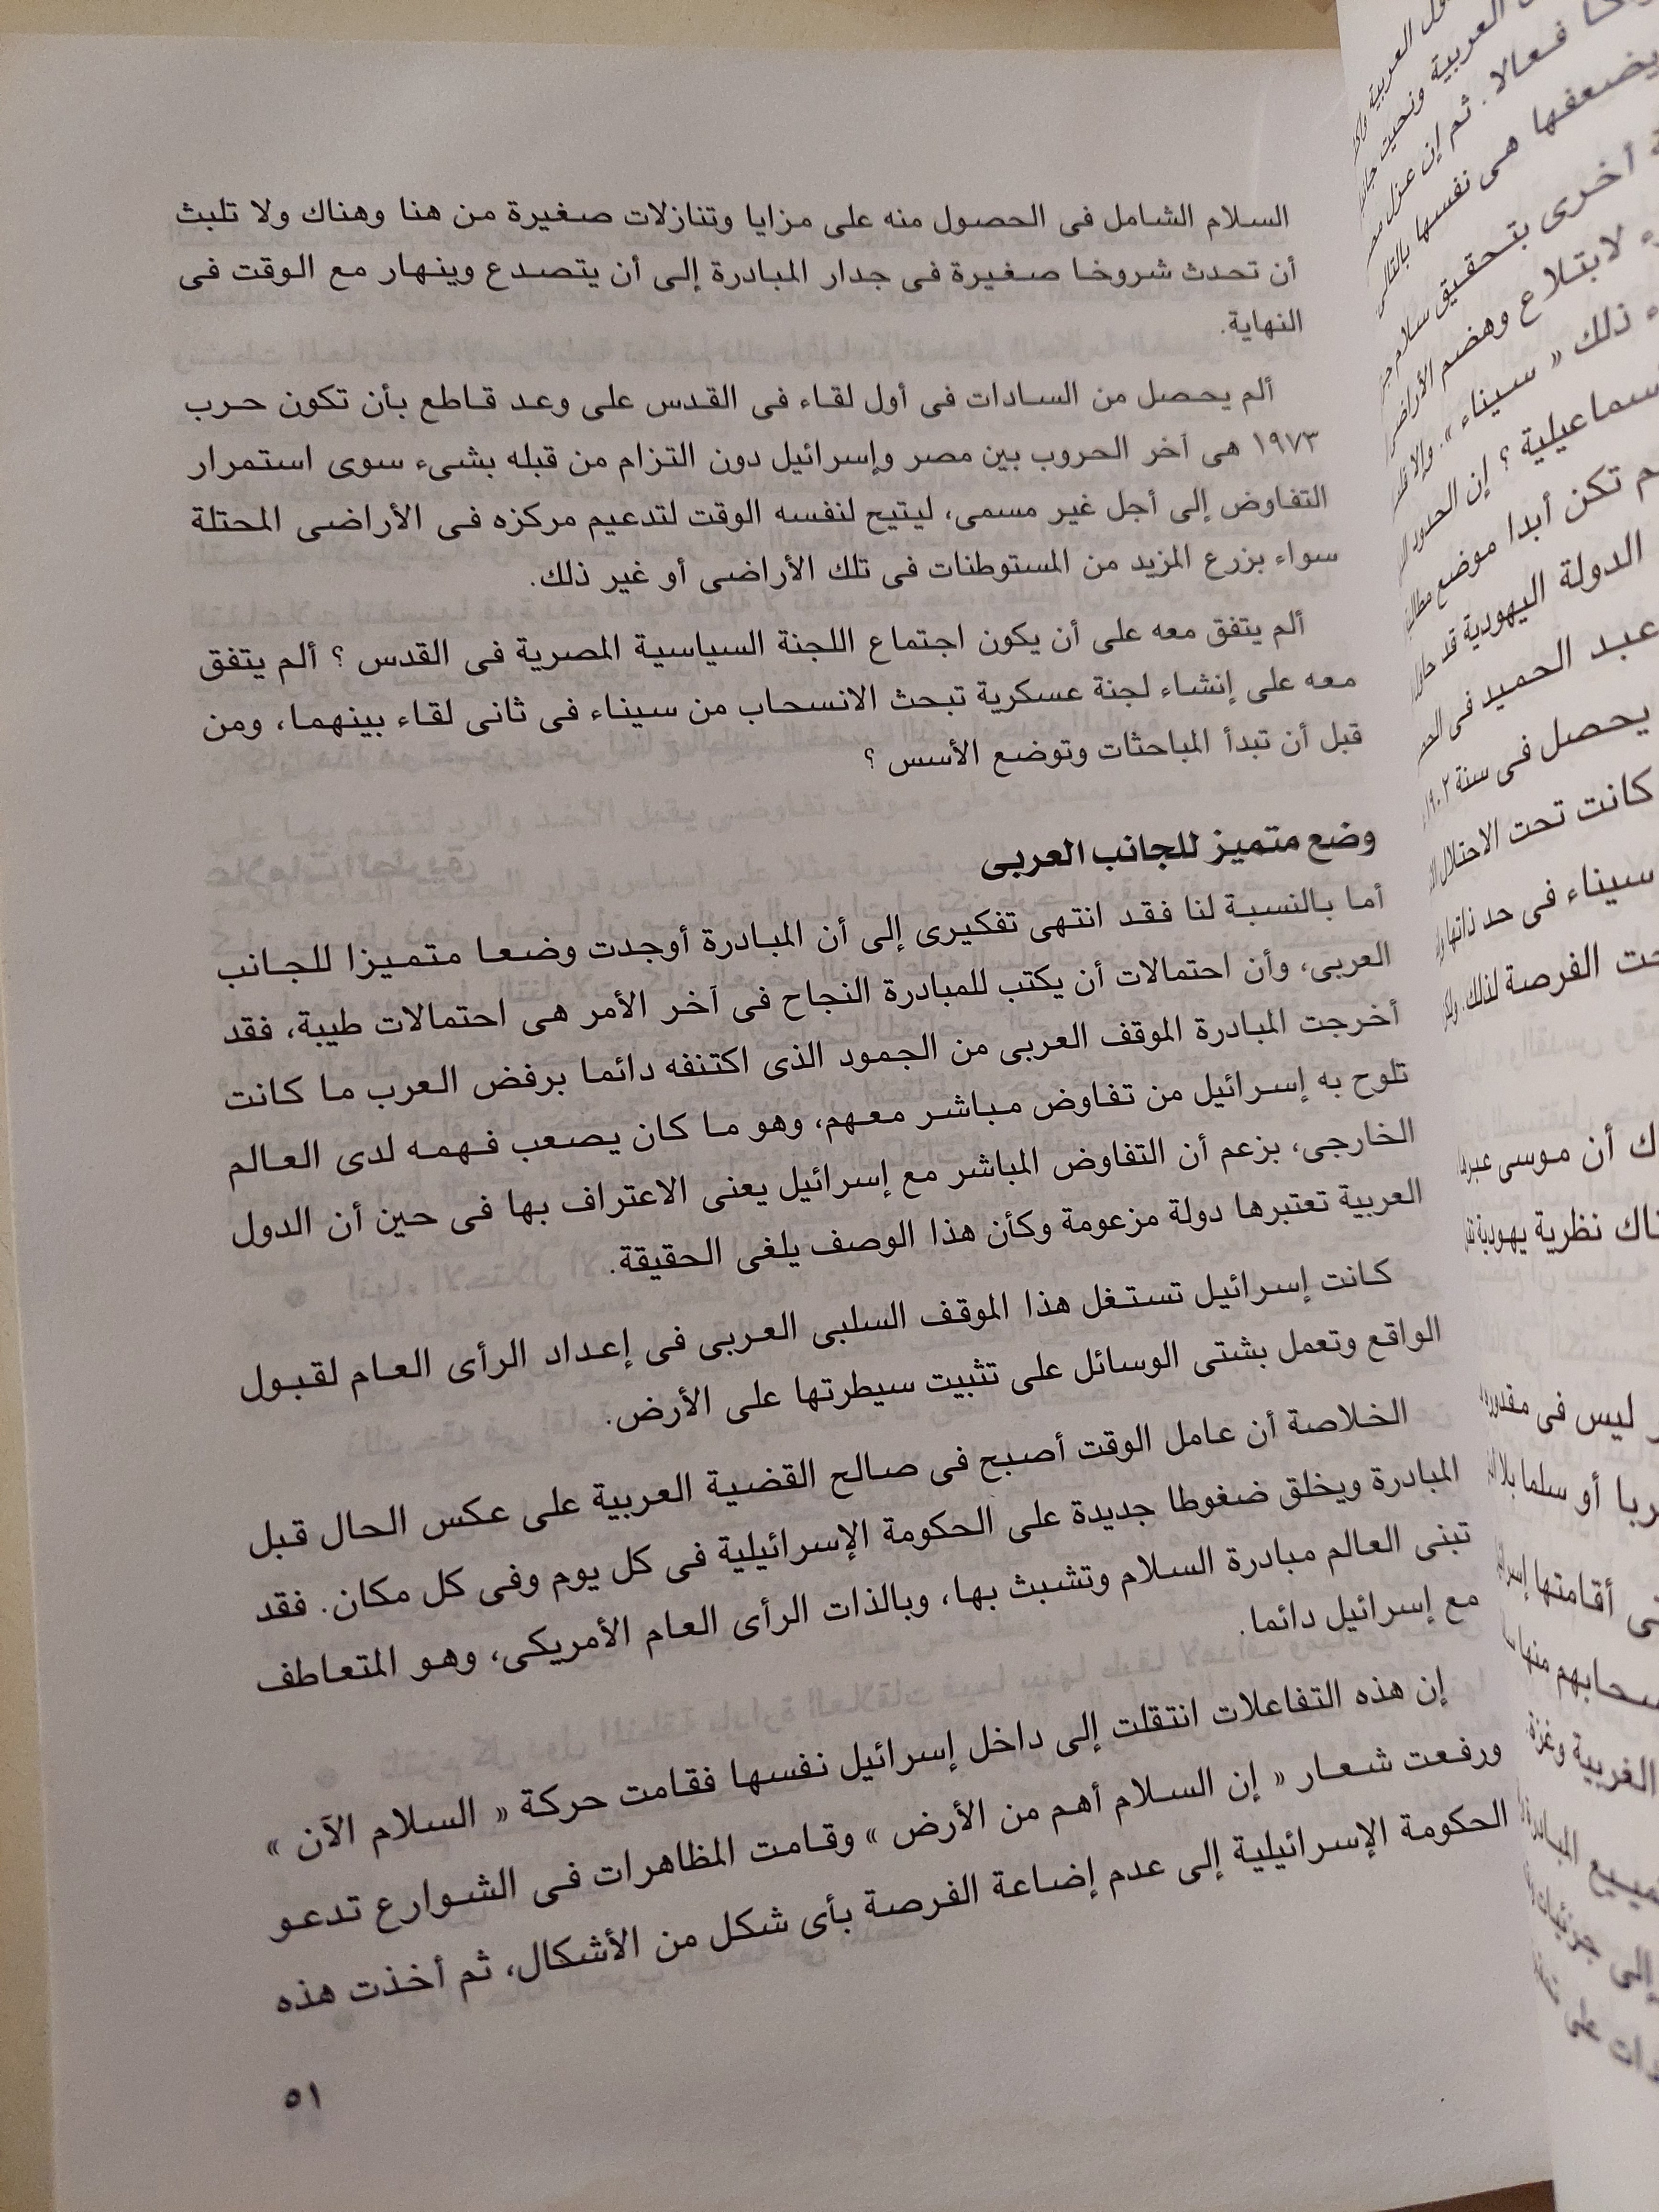 السلام الشامل فى الحصول منه على مزايا وتنازلات صغيرة من هنا وهناك ولا تلبث
أن تحدث شروخا صغيرة فى جدار المبادرة إلى أن يتصدع وينهار مع الوقت فى
النهاية.
ألم يحصل من السادات فى أول لقاء فى القدس على وعد قاطع بأن تكون حرب
١٩٧٣ هى آخر الحروب بين مصر وإسرائيل دون التزام من قبله بشىء سوى استمرار
التفاوض إلى أجل غير مسمى، ليتيح لنفسه الوقت لتدعيم مركزه فى الأراضى المحتلة
سواء بزرع المزيد من المستوطنات فى تلك الأراضى أو غير ذلك.
ألم يتفق معه على أن يكون اجتماع اللجنة السياسية المصرية فى القدس ؟ ألم يتفق
معه على إنشاء لجنة عسكرية تبحث الانسحاب من سيناء فى ثانى لقاء بينهما، ومن
قبل أن تبدأ المباحثات وتوضع الأسس ؟
وضع متميز للجانب العربى
أما بالنسبة لنا فقد انتهى تفكيرى إلى أن المبادرة أوجدت وضعا متميزا للجانب
العربى، وأن احتمالات أن يكتب للمبادرة النجاح فى آخر الأمر هى احتمالات طيبة، فقد
أخرجت المبادرة الموقف العربى من الجمود الذى اكتنفه دائما برفض العرب ما كانت
تلوح به إسرائيل من تفاوض مباشر معهم، وهو ما كان يصعب فهمه لدى العالم
الخارجى، بزعم أن التفاوض المباشر مع إسرائيل يعنى الاعتراف بها فى حين أن الدول
العربية تعتبرها دولة مزعومة وكأن هذا الوصف يلغى الحقيقة.
كانت إسرائيل تستغل هذا الموقف السلبى العربى فى إعداد الرأى العام لقبول
الواقع وتعمل بشتى الوسائل على تثبيت سيطرتها على الأرض.
الخلاصة أن عامل الوقت أصبح فى صالح القضية العربية على عكس الحال قبل
المبادرة ويخلق ضغوطا جديدة على الحكومة الإسرائيلية فى كل يوم وفى كل مكان. فقد
تبنى العالم مبادرة السلام وتشبث بها، وبالذات الرأى العام الأمريكى، وهو المتعاطف
مع إسرائيل دائما.
إن هذه التفاعلات انتقلت إلى داخل إسرائيل نفسها فقامت حركة « السلام الآن »
ورفعت شعار « إن السلام أهم من الأرض » وقامت المظاهرات فى الشوارع تدعو
الحكومة الإسرائيلية إلى عدم إضاعة الفرصة بأى شكل من الأشكال، ثم أخذت هذه
٥١
العربية ونحيت
فعالا . ثم إن عزل
يضعفها هى نفسها بالتالى
أخرى بتحقيق سلام
لابتلاع وهضم الأراضى
ذلك « سيناء ». وإلا
إن الحدود
تكن أبدا موضع
الدولة اليهودية قد
عبد الحميد فى
يحصل فى سنة ١٩٠٢
كانت تحت الاحتلال
سيناء فى حد ذاتها
الفرصة لذلك.
أن موسى
نظرية يهودية
ليس فى
أو سلما
أقامتها
منها
الغربية وغزة
إلى
على